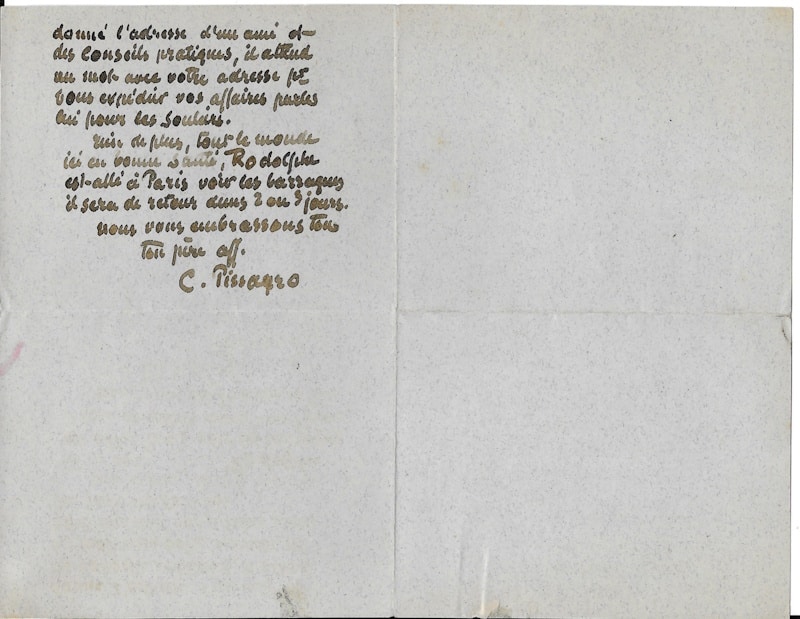 donné l'adresse d'un ami et
des conseils pratiques, il attend
un mot avec votre adresse pr
vous expédier vos affaires partes
lui pour les
rien de plus, tout le monde
ici en bonne santé, Rodolphe
est allé à Paris voir les barraques
il sera de retour dans 2 ou 3 jours.
nous vous embrassons tous
ton père aff.
C. Pissarro